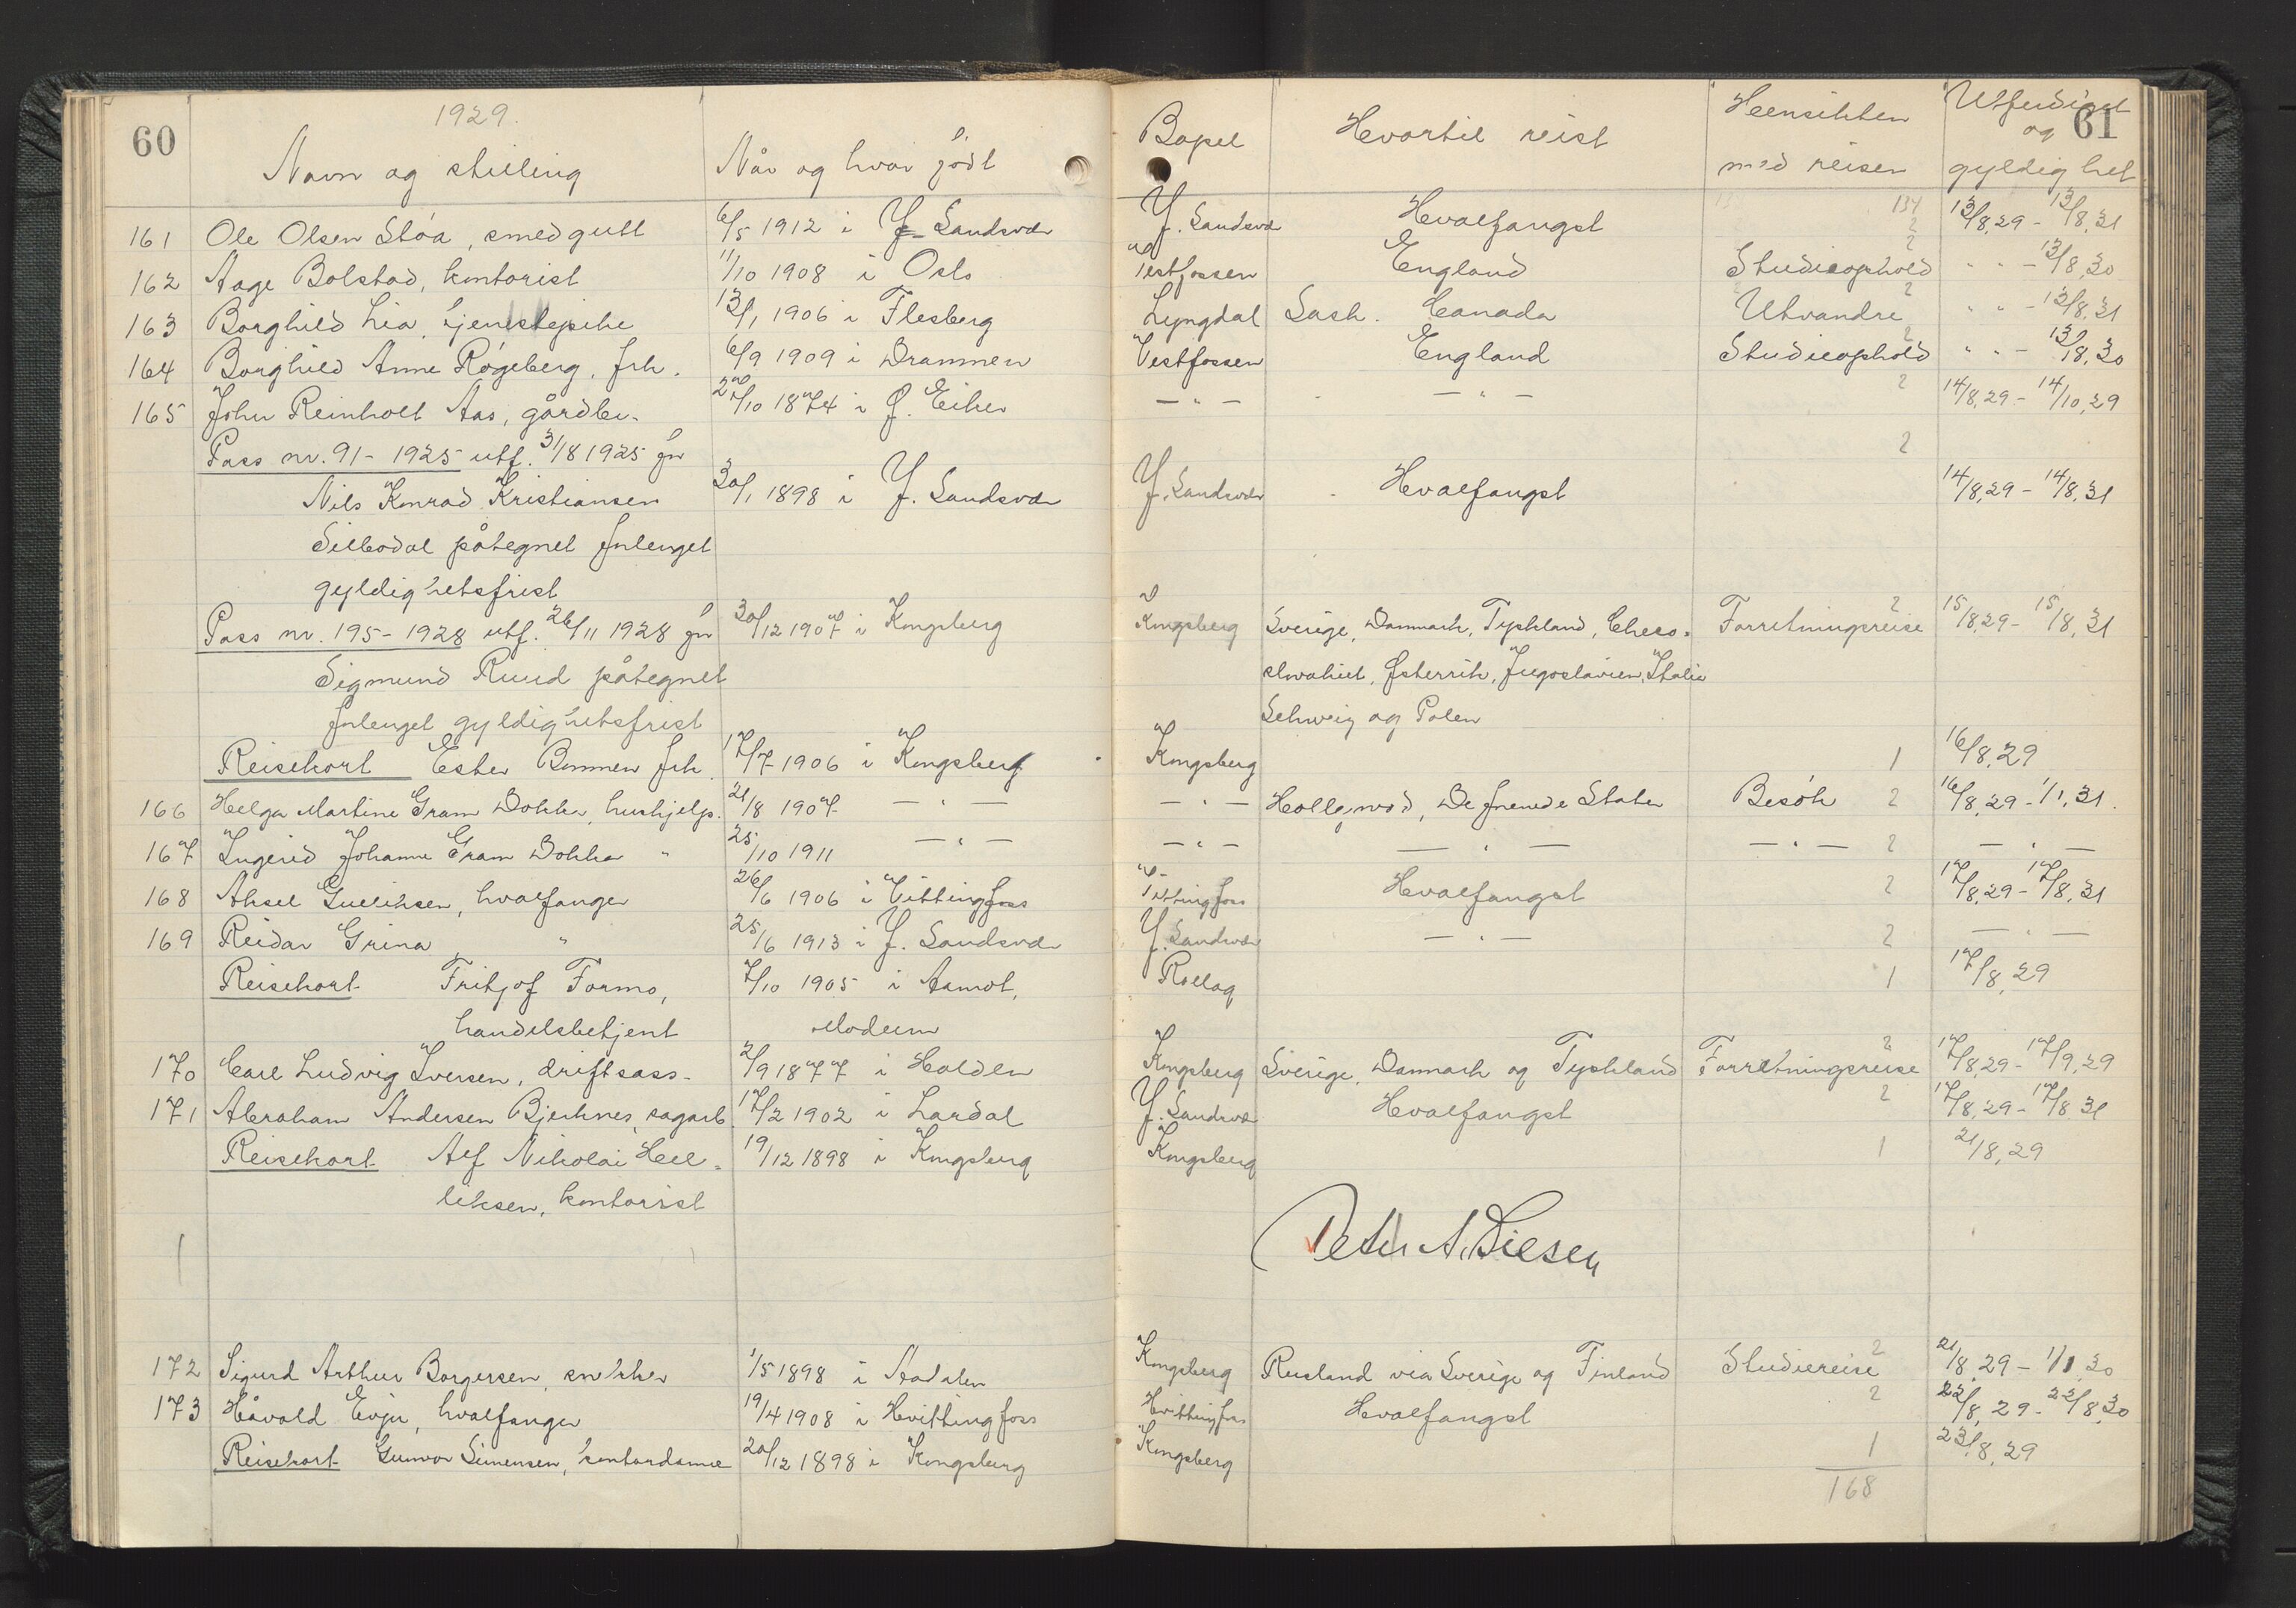 60 1929. 61
Navn og stilling Når og hvor født Bopel Hvortil reist Hensikten med reisen Utferdiget og gyldighet
134
161 Ole Olsen Stóa, smedgutt 6/5 1912 i Y. Sandsvær Y. Sandsvær Hvalfangst 2 13/8.29 - 13/8.31
162 Aage Bolstad, kontorist 11/10 1908 i Oslo Vestfossen England Studieophold 2 " " - 13/8.30
163 Borghild Lia, tjenestepike 13/1 1906 i Flesberg Lyngdal Sask. Canada Utvandre 2 " " - 13/8.31
164 Borghild Anne Røgeberg, frk. 6/9 1909 i Drammen Vestfossen England Studieophold 2 " " - 13/8.30
165 John Reinholt Aas, gårdbr. 27/10 1874 i Ø. Eiker - " - - " - 2 14/8.29 - 14/10.29
Pass nr. 91 - 1925 utf. 31/8 1925 for 2
Nils Konrad Kristiansen 30/1 1898 i Y. Sandsvær Y. Sandsvær Hvalfangst 14/8.29 - 14/8.31
Silbodal påtegnet forlenget
gyldighetsfrist
Pass nr. 195 - 1928 utf. 26/11 1928 for 30/12 1907 i Kongsberg Kongsberg Sverige, Danmark, Tyskland, Checo- Forretningsreise 2 15/8.29 - 15/8.31
Sigmund Ruud påtegnet slovakiet, Østerrik, Jugoslavien, Italie
forlenget gyldighetsfrist Schweiz og Polen
Reisekort Ester Bommen frk. 17/7 1906 i Kongsberg Kongsberg 1 16/8.29
166 Helga Martine Gram Dokka, hushjelp. 21/8 1907 - " - - " - Hollywood, De forenede Stater Besök 2 16/8.29 - 1/1.31.
167 Ingerid Johanne Gram Dokka " 25/10 1911 - " - - " - - " - - " - 2 - " -
168 Aksel Gulliksen, hvalfanger 26/6 1906 i Vittingfoss Vittingfoss Hvalfangst 2 17/8.29 - 17/8.31
169 Reidar Grina " 25/6 1913 i Y. Sandsvær Y. Sandsvær - " - 2 - " -
Reisekort Fritjof Formo, 7/10 1905 i Aamot, Rollag 1 17/8.29
handelsbetjent Modum
170 Carl Ludvig Iversen, driftsass. 2/9 1877 i Halden Kongsberg Sverige, Danmark og Tyskland Forretningsreise 2 17/8.29 - 17/9.29
171 Abraham Andersen Bjerknes, sagarb. 17/2 1902 i Lardal Y. Sandsvær Hvalfangst 2 17/8.29 - 17/8.31
Reisekort Alf Nikolai Hel- 19/12 1898 i Kongsberg Kongsberg 1 21/8.29
liksen, kontorist
172 Sigurd Arthur Borgersen, snekker 1/5 1898 i Aadalen Kongsberg Rusland via Sverige og Finland Studiereise 2 21/8.29 - 1/1.30
173 Håvald Evju, hvalfanger 19/4 1908 i Hvittingfoss Hvittingfoss Hvalfangst 2 22/8.29 - 22/8.30
Reisekort Gunvor Simensen, kontordame 20/12 1898 i Kongsberg Kongsberg 1 23/8.29
168